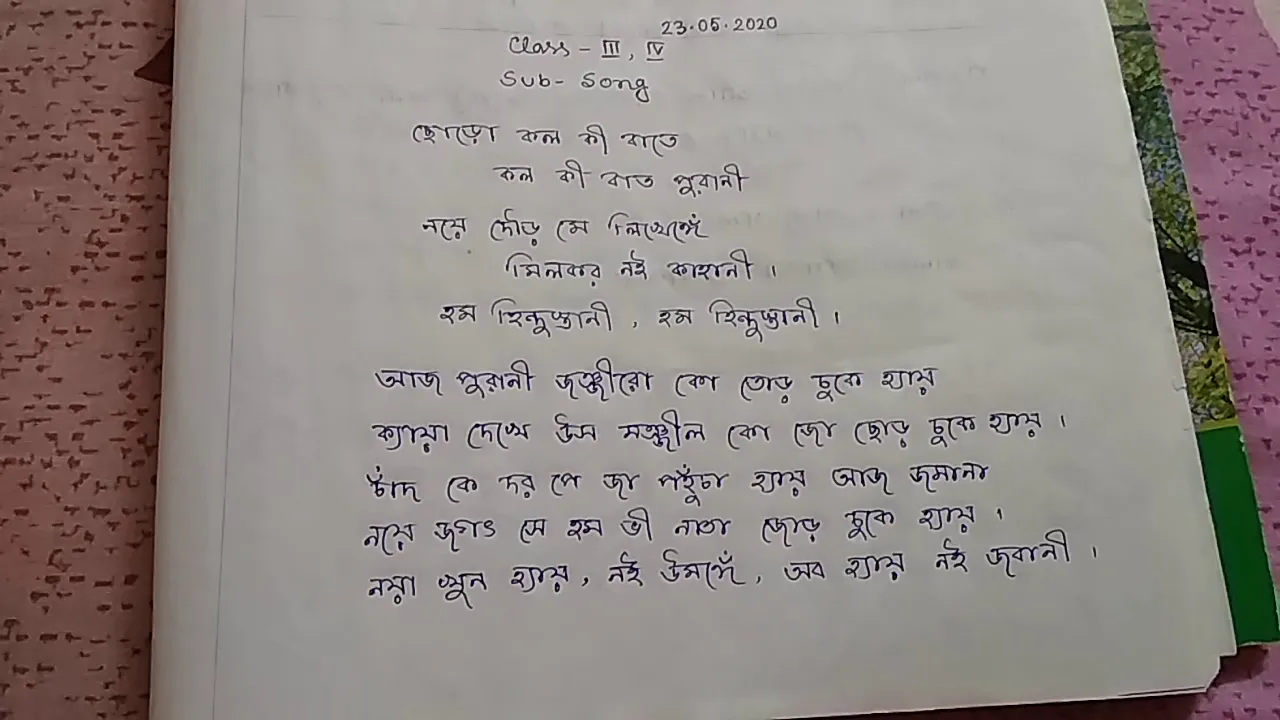 23.05.2020
Class - III, IV
Sub- Song
ছোড়ো কল কী বাতে
কল কী বাত পুরানী
নয়ে দৌড় মে লিখেঙ্গেঁ
মিলকর নই কাহানী ।
হম হিন্দুস্তানী , হম হিন্দুস্তানী ।
আজ পুরানী জঞ্জীরো কো তোড় চুকে হ্যায়
ক্যায়া দেখে উস মঞ্জীল কো জো ছোড় চুকে হ্যায় ।
চাঁদ কে দর পে জা পহুঁচা হ্যায় আজ জমানা
নয়ে জগৎ সে হম ভী নাতা জোড় চুকে হ্যায় ।
নয়া খুন হ্যায় , নই উমঙ্গেঁ , অব হ্যায় নই জবানী ।